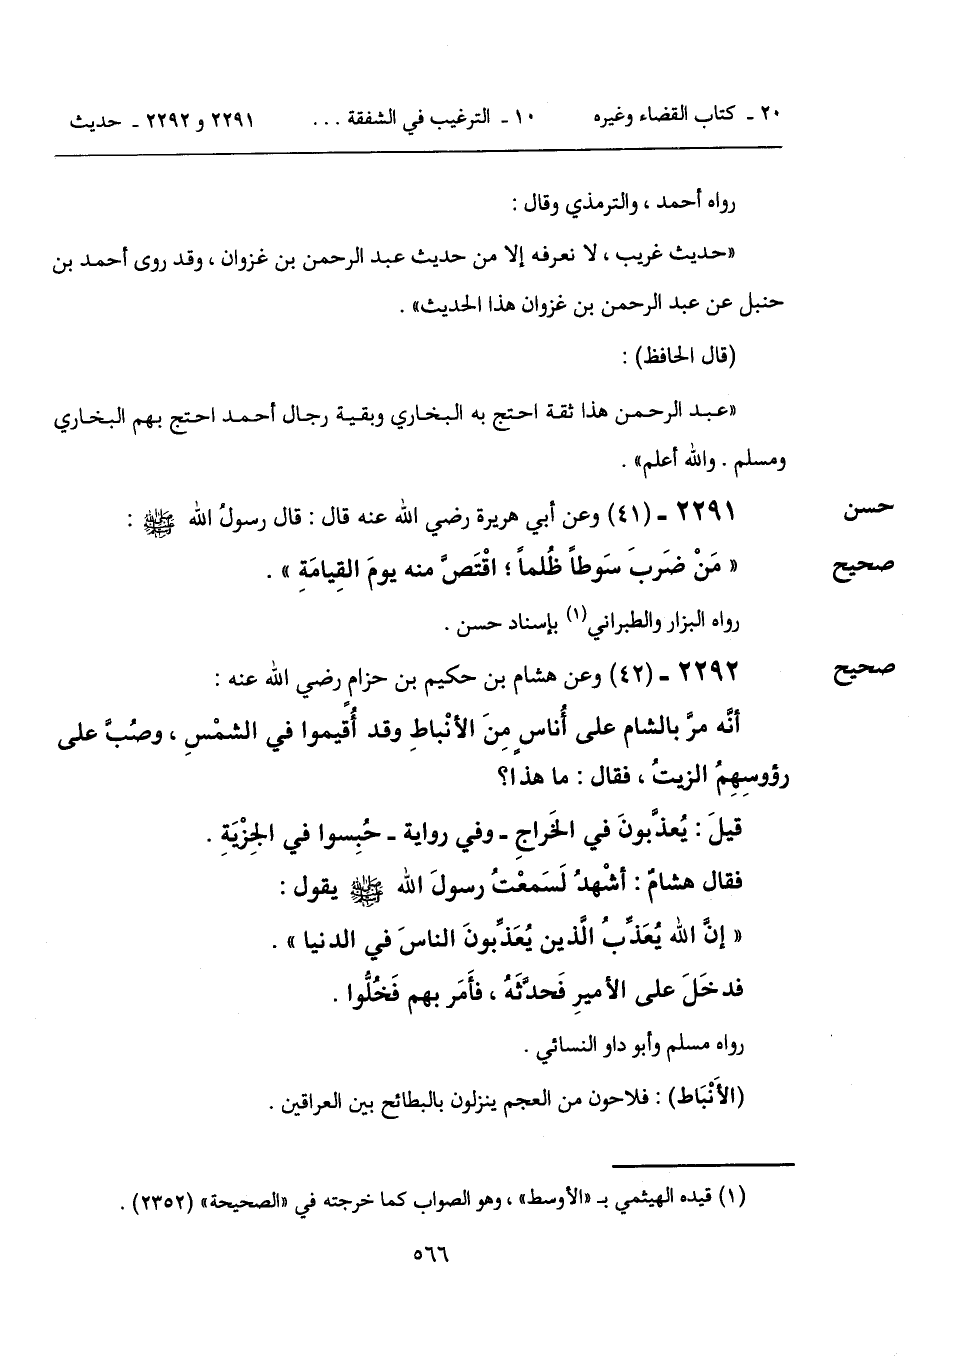 ٢٠ ـ كتاب القضاء وغيره ١٠ ـ الترغيب في الشفقة ... ٢٢٩١ و ٢٢٩٢ ـ حديث
رواه أحمد ، والترمذي وقال :
«حديث غريب ، لا نعرفه إلا من حديث عبد الرحمن بن غزوان ، وقد روى أحمد بن
حنبل عن عبد الرحمن بن غزوان هذا الحديث» .
(قال الحافظ) :
«عبد الرحمن هذا ثقة احتج به البخاري وبقية رجال أحمد احتج بهم البخاري
ومسلم . والله أعلم» .
حسن ٢٢٩١ ـ (٤١) وعن أبي هريرة رضي الله عنه قال : قال رسولُ الله ﷺ :
صحيح « مَنْ ضَربَ سَوطاً ظُلماً ؛ اقْتَصَّ منه يومَ القِيامَةِ » .
رواه البزار والطبراني(١) بإسناد حسن .
صحيح ٢٢٩٢ ـ (٤٢) وعن هشام بن حكيم بن حزامٍ رضي الله عنه :
أنَّه مرَّ بالشام على أُناسٍ مِنَ الأنْباطِ وقد أُقيموا في الشمْسِ ، وصُبَّ على
رؤوسِهِمُ الزيتُ ، فقال : ما هذا؟
قيلَ : يُعذَّبونَ في الخَراجِ ـ وفي رواية ـ حُبِسوا في الجِزْيَةِ .
فقال هشامٌ : أشْهدُ لَسَمعْتُ رسولَ الله ﷺ يقول :
« إنَّ الله يُعَذِّبُ الَّذين يُعَذِّبونَ الناسَ في الدنيا » .
فدخَلَ على الأميرِ فَحدَّثَهُ ، فأَمَر بهم فَخُلُّوا .
رواه مسلم وأبو داو النسائي .
(الأَنْبَاط) : فلاحون من العجم ينزلون بالبطائح بين العراقين .
(١) قيده الهيثمي بـ «الأوسط» ، وهو الصواب كما خرجته في «الصحيحة» (٢٣٥٢) .
٥٦٦